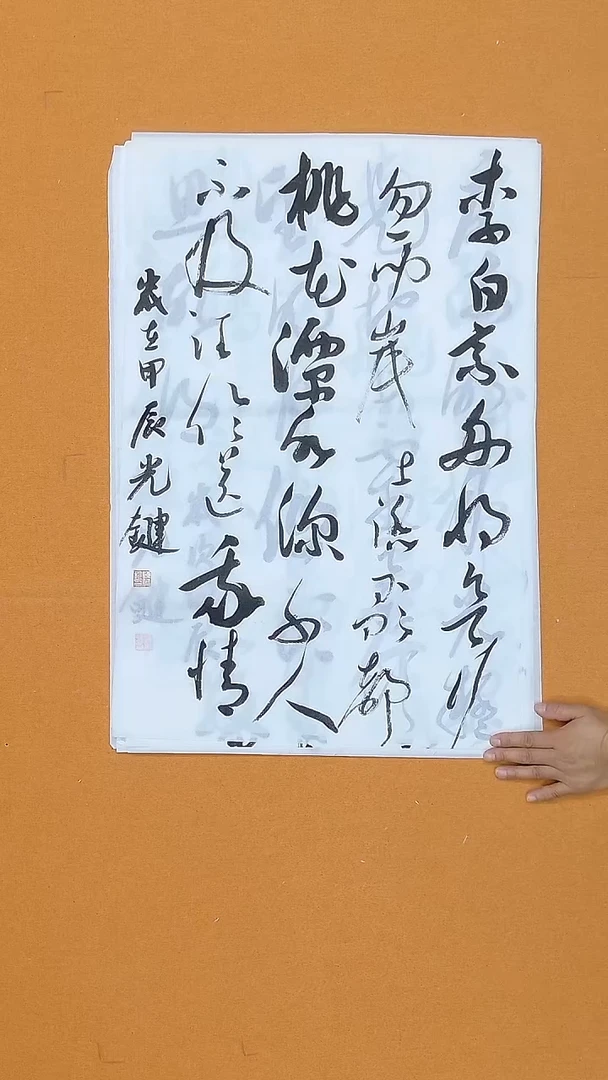 李白乘舟将欲行
忽闻岸上踏歌声
桃花潭水深千尺
不及汪伦送我情
岁在甲辰光鍵